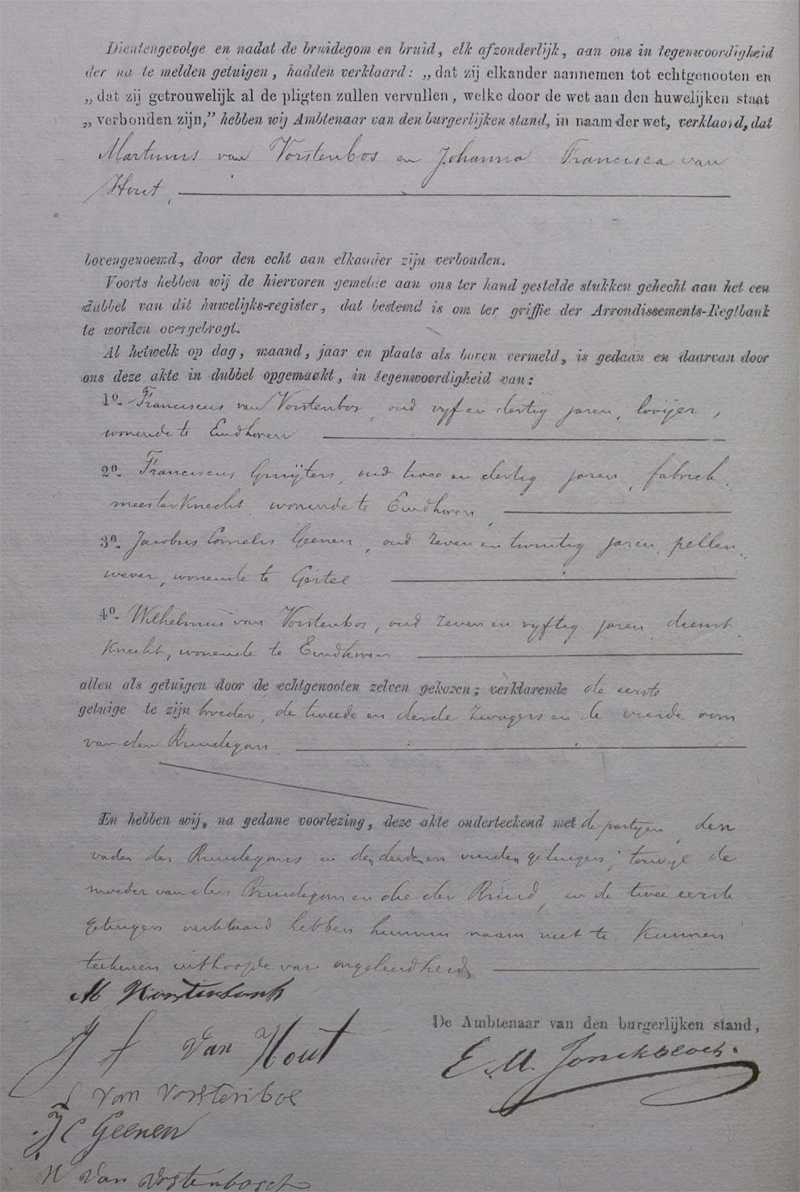 Dientengevolge en nadat de bruidegom en bruid, elk afzonderlijk, aan ons in tegenwoordigheid
der na te melden getuigen, hadden verklaard: „dat zij elkander aannemen tot echtgenooten en
„dat zij getrouwelijk al de pligten zullen vervullen, welke door de wet aan den huwelijken staat
„verbonden zijn,” hebben wij Ambtenaar van den burgerlijken stand, in naam der wet, verklaard, dat
Martinus van Vorstenbos en Johanna Francisca van
Hout,
bovengenoemd, door den echt aan elkander zijn verbonden.
Voorts hebben wij de hiervoren gemelde aan ons ter hand gestelde stukken gehecht aan het een
dubbel van dit huwelijks-register, dat bestemd is om ter griffie der Arrondissements-Regtbank
te worden overgebragt.
Al hetwelk op dag, maand, jaar en plaats als boven vermeld, is gedaan en daarvan door
ons deze akte in dubbel opgemaakt, in tegenwoordigheid van:
1o. Franciscus van Vorstenbos, oud vyf en dertig jaren, looijer,
wonende te Eindhoven
2o. Franciscus Gruijters, oud twee en dertig jaren, fabriek
meesterknecht, wonende te Eindhoven,
3o. Jacobus Cornelis Geenen, oud zeven en twintig jaren, pellen
wever, wonende te Gestel
4o. Wilhelmus van Vorstenbos, oud zeven en vyftig jaren, dienst
knecht, wonende te Eindhoven
allen als getuigen door de echtgenooten zelven gekozen; verklarende de eerste
getuige te zijn broeder, de tweede en derde zwagers en de vierde oom
van den Bruidegom,
En hebben wij, na gedane voorlezing, deze akte onderteekend met de partyen, den
vader des Bruidegoms en den derden en vierden getuigen, terwyl de
moeder van den Bruidegom en die der Bruid, en de twee eerste
getuigen verklaard hebben hunnen naam niet te kunnen
teekenen uit hoofde van ongeleerdheid,
M Vorstenbosch
J F Van Hout
De Ambtenaar van den burgerlijken stand,
van vorstenbos
J C Geenen
W van vorstenbosch